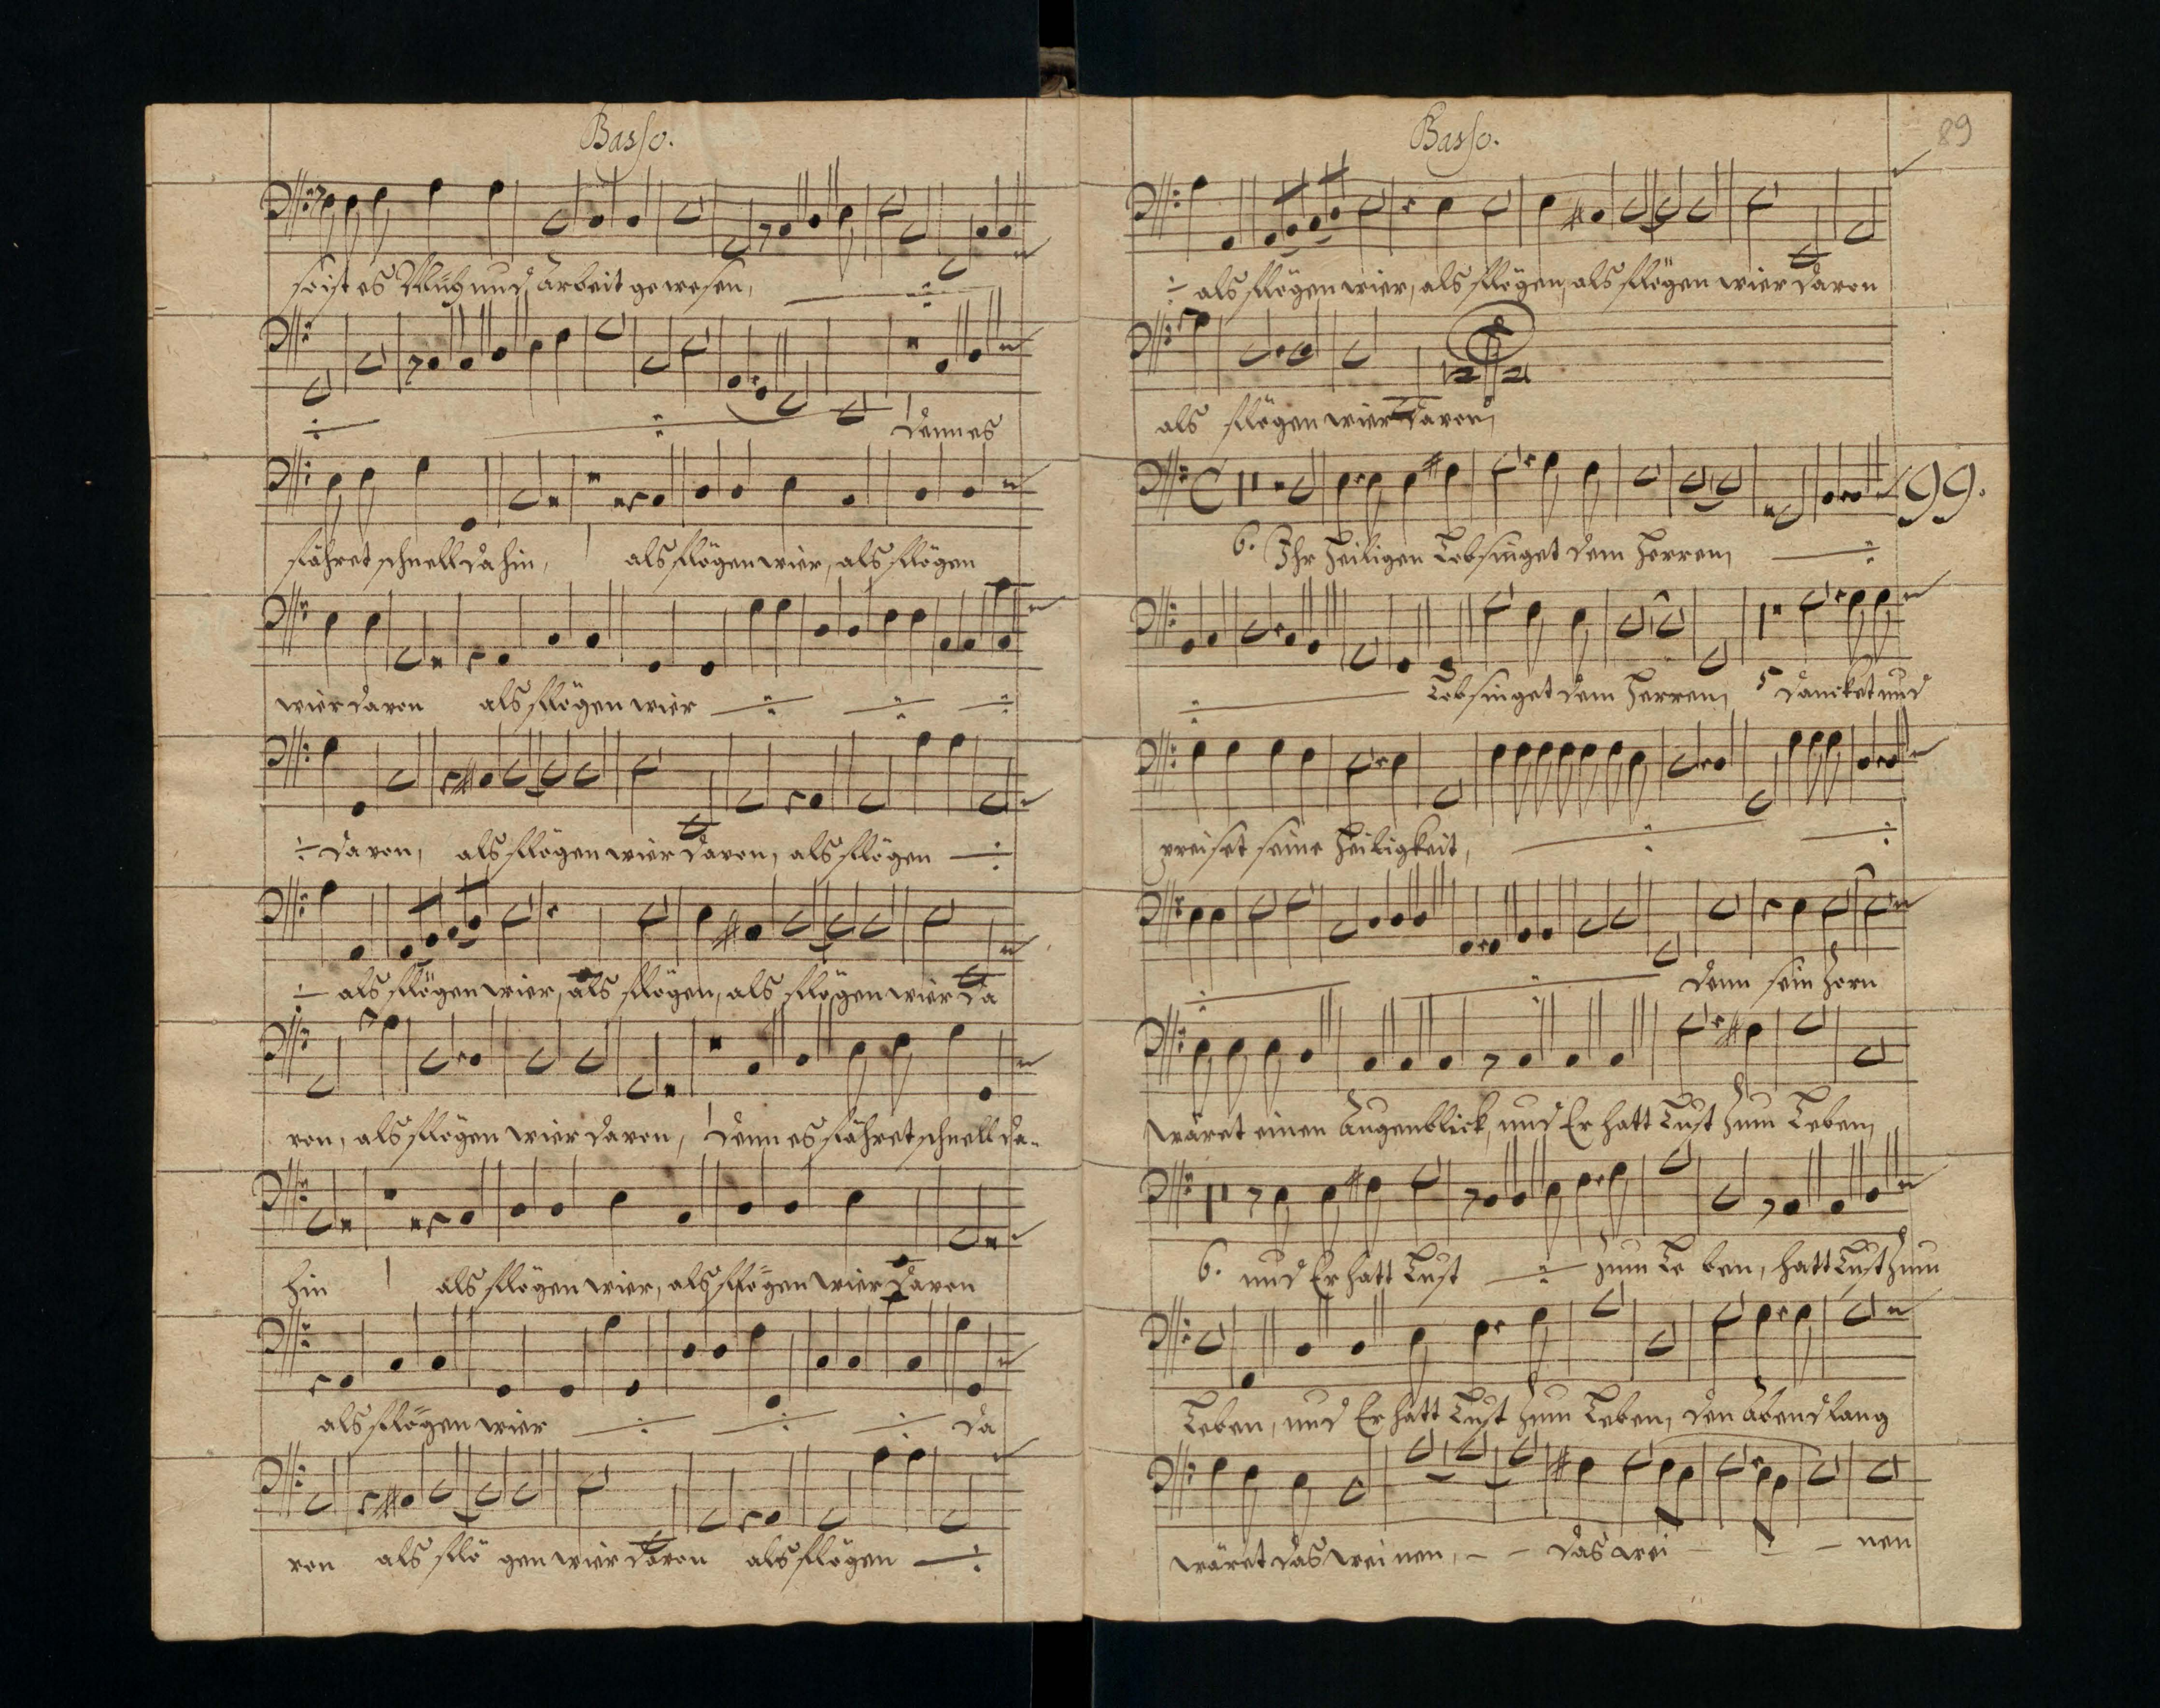 Basso.
so ist es Müh und Arbeit gewesen,
Denn es
fähret schnell dahin, als flögen wier, als flögen
wier davon als flögen wier
davon, als flögen wier davon, als flögen
als flögen wier, als flögen, als flögen wier da
von, als flögen wier davon, Denn es fähret schnell da-
hin als flögen wier, als flögen wier davon
als flögen wier da
von als flö gen wier davon als flögen
Basso.
89
als flögen wier, als flögen, als flögen wier davon
als flögen wier davon,
99.
6. Ihr Heiligen Lobsinget dem Herren,
Lobsinget dem Herren, 5 dancket und
preiset seine Heiligkeit,
Denn sein Zorn
wäret einen Augenblick, und Er hatt Lust zum Leben,
6. und Er hatt Lust zum Le ben, hatt Lust zum
Leben, und Er hatt Lust zum Leben, den Abend lang
wäret das wei nen, - - das wei - - - nen